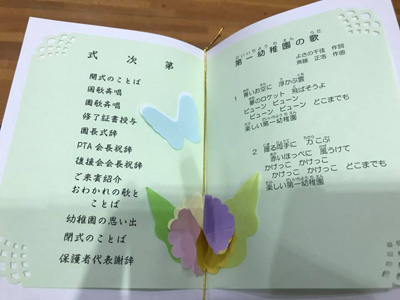 式次第
開式のことば
国歌斉唱
園歌斉唱
修了証書授与
園長式辞
PTA会長祝辞
後援会会長祝辞
ご来賓紹介
おわかれの歌と
ことば
幼稚園の思い出
閉式のことば
保護者代表謝辞
第一幼稚園の歌
よさの千佳 作詞
斉藤 正浩 作曲
1 青いお空に 浮かぶ雲
夢のロケット 飛ばそうよ
ビューン ビューン どこまでも
ビューン ビューン
楽しい第一幼稚園
2 握る両手に 力こぶ
赤いほっぺに 風うけて
かけっこ かけっこ どこまでも
かけっこ かけっこ
楽しい第一幼稚園